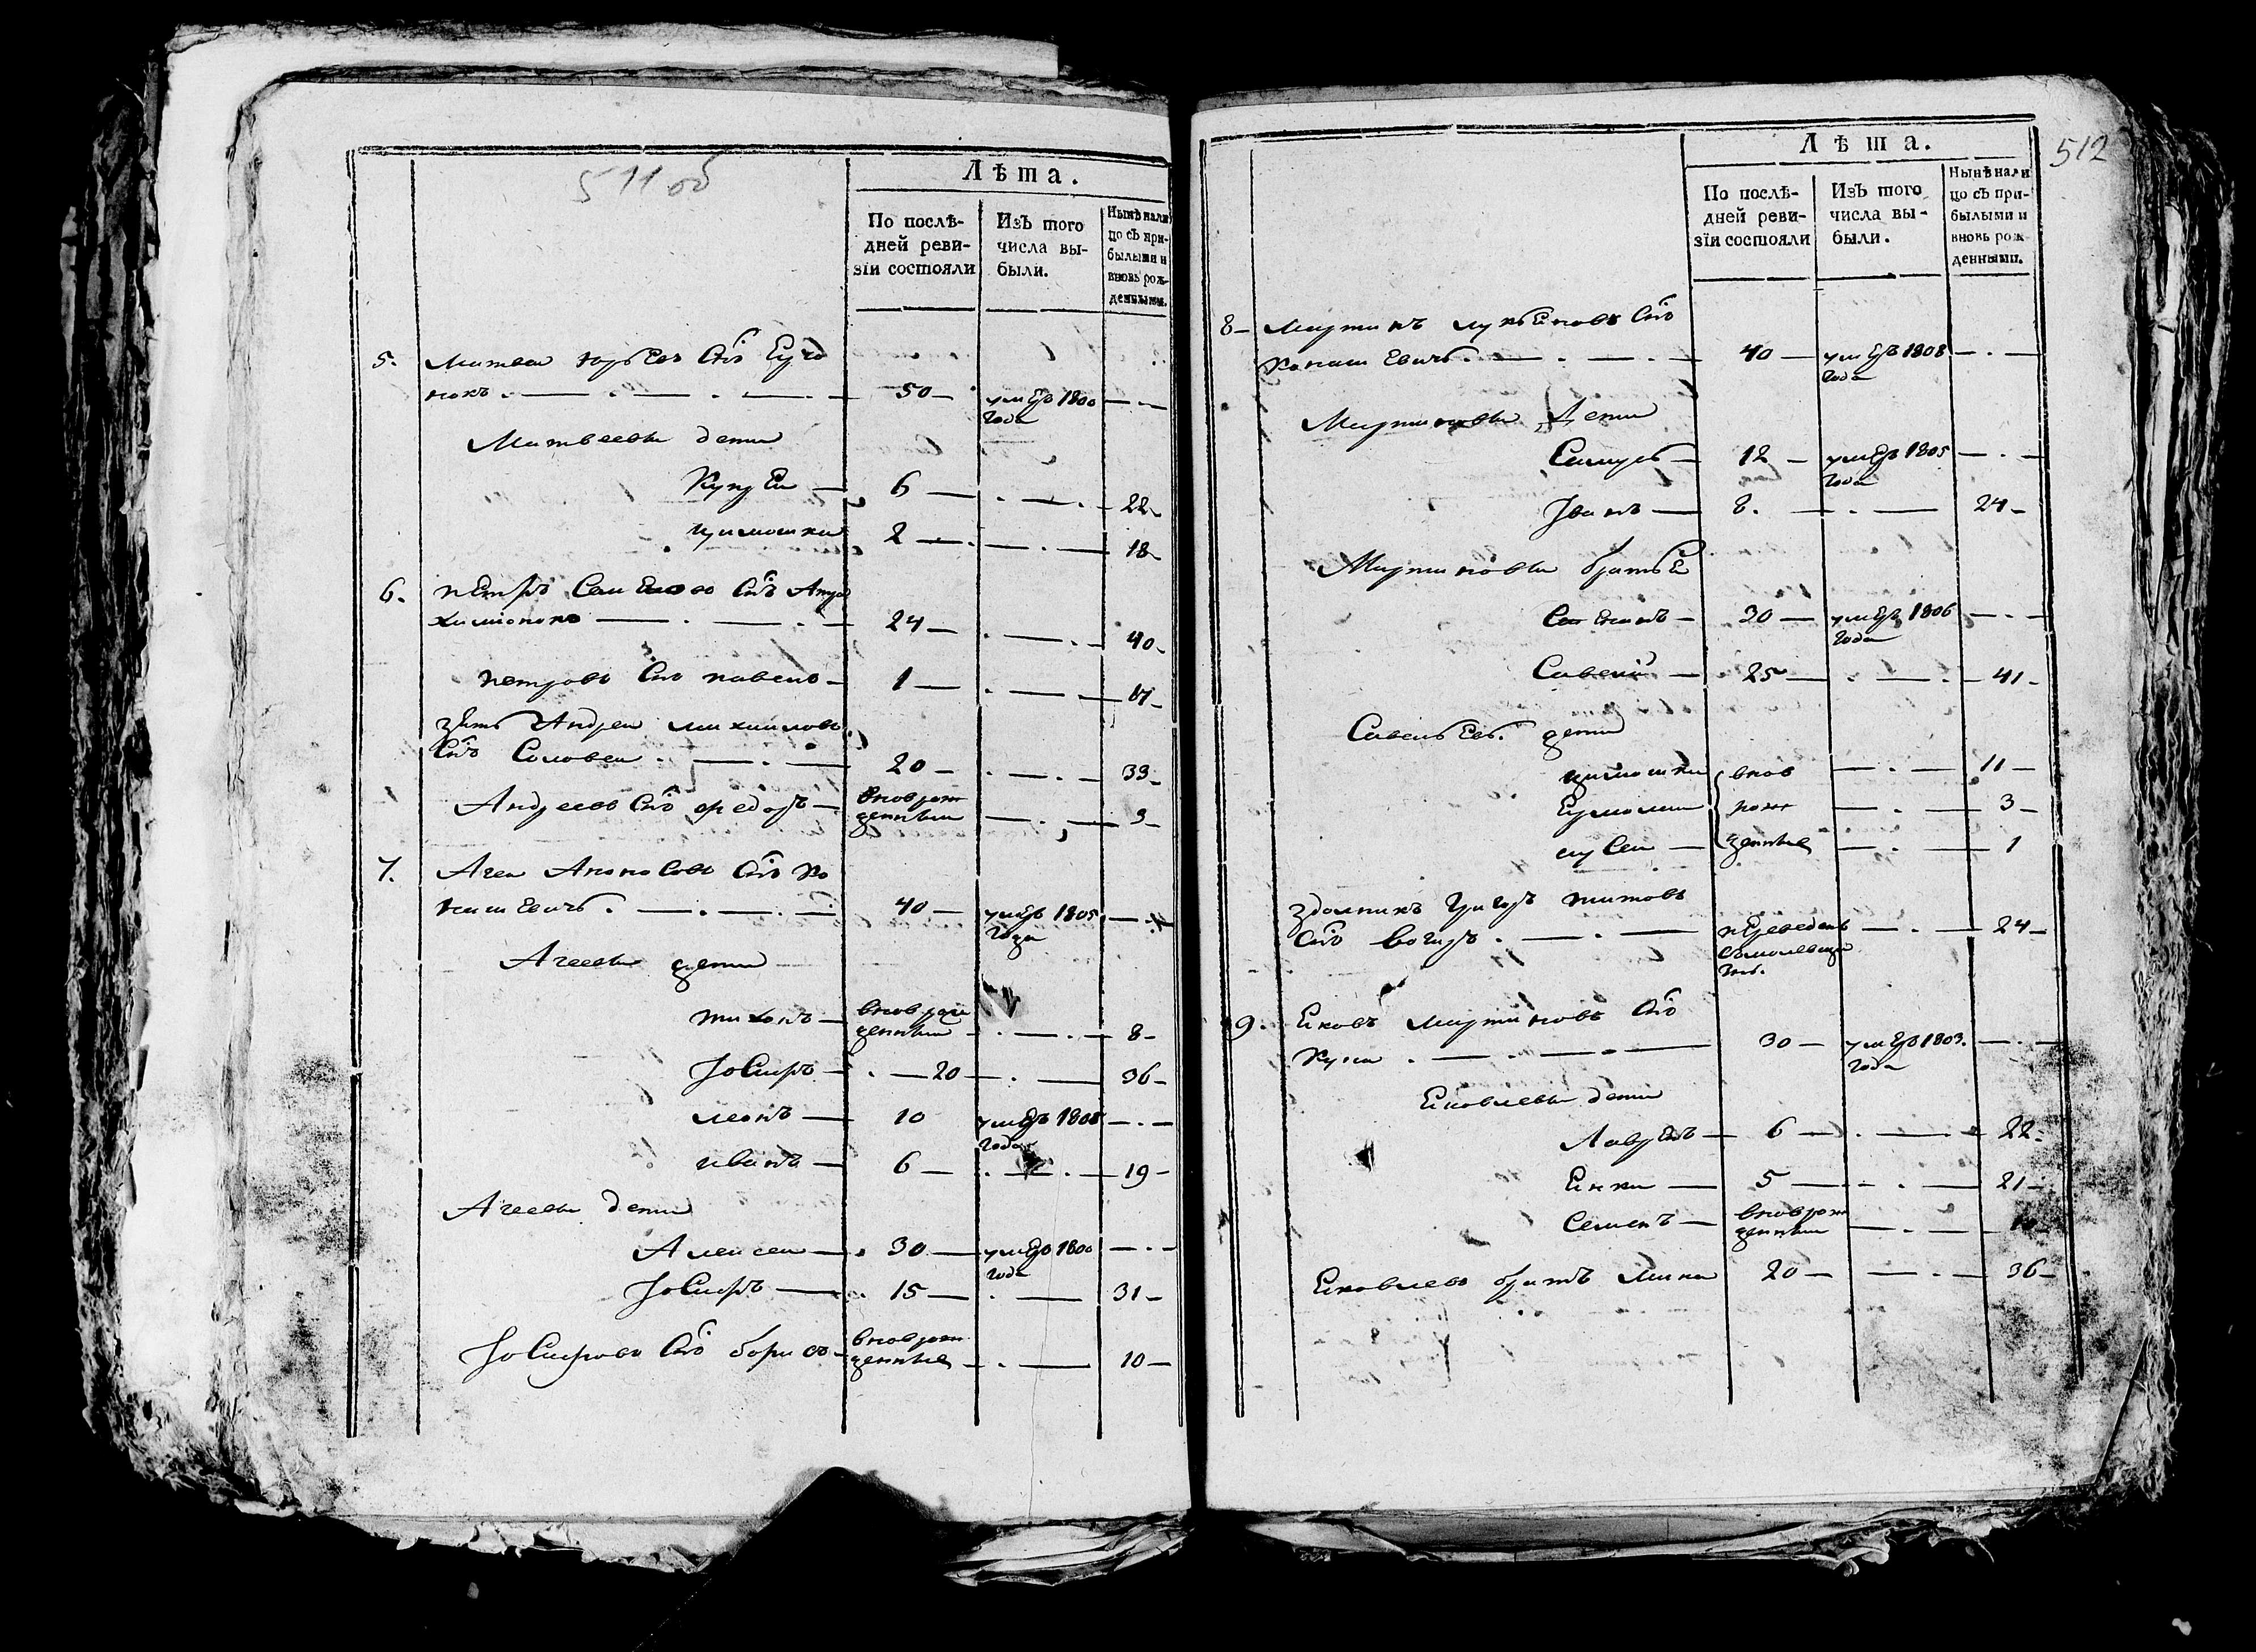 511 об
Лѣта.
По послѣ-
дней реви-
зїи состояли
Изъ того
числа вы-
были.
Нынѣ нали
цо съ при-
былыми и
вновь рож-
денными.
5. Матвеи юрьевъ Снъ
нокъ 50 умеръ 1800
года
Матвеевы дети
6 22
цимошка 2 18
6. петръ Семеновъ Снъ
24 40
петровъ Снъ павелъ 1 17
зять Андреи михаиловъ
Снъ Соловеи 20 33
Андреевъ Снъ федоръ вновърож
денныи 3
7. Агеи Снъ Ко
нашевичъ 40 умеръ 1805
года
Агеевы дети
тихонъ вновърож
денныи 8
Іосифъ 20 36
леонъ 10 умеръ 1808
года
иванъ 6 19
Агеевы дети
Алексеи 30 умеръ 1800
года
Іосифъ 15 31
Іосифовъ Снъ борисъ вновърож
денные 10
512
Лѣта.
По послѣ-
дней реви-
зїи состояли
Изъ того
числа вы-
были.
Нынѣ нали
цо съ при-
былыми и
вновь рож
денными.
8 Мартинъ лукьяновъ Снъ
Конашевичъ 40 умеръ 1808
года
Мартиновы Дети
Самуль 12 умеръ 1805
года
Іванъ 8. 24
Мартиновы братье
30 умеръ 1806
года
Савели 25 41
Савельев. дети
цимошка внов 11
Ермолаи рож 3
денные 1
здолникъ Григоръ титовъ
Снъ переведенъ 24
9. Ековъ мартиновъ Снъ
30 умеръ 1803.
года
Ековлевы дети
Лавренъ 6 22
5 21
Семенъ вновърож
денныи
Ековлевъ братъ мина 20 36